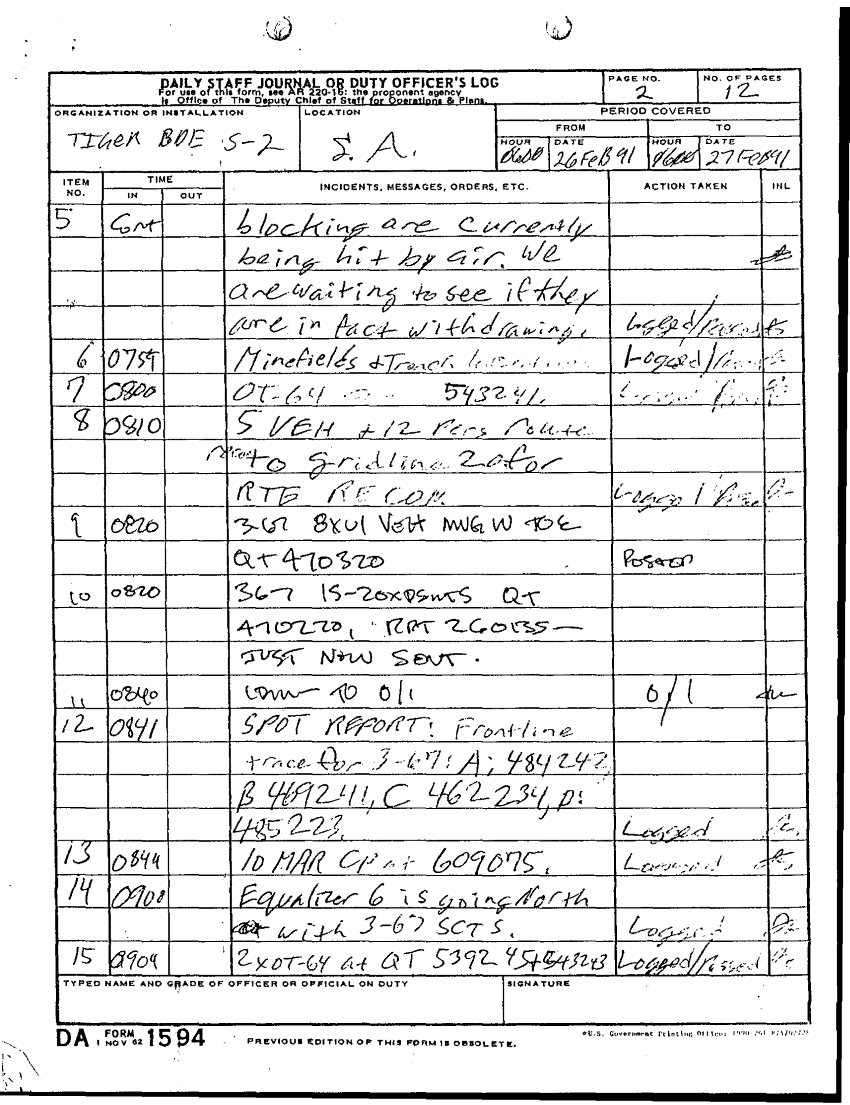 DAILY STAFF JOURNAL OR DUTY OFFICER'S LOG
For use of this form, see AR 220-15; the proponent agency
is Office of The Deputy Chief of Staff for Operations & Plans.
PAGE NO.
2
NO. OF PAGES
12
ORGANIZATION OR INSTALLATION
TIGER BDE S-2
LOCATION
S.A.
PERIOD COVERED
FROM
TO
HOUR
0600
DATE
26 FEB 91
HOUR
0600
DATE
27 FEB 91
ITEM NO.
TIME
IN
OUT
INCIDENTS, MESSAGES, ORDERS, ETC.
ACTION TAKEN
INL
5 Cont blocking are currently
being hit by air. We
are waiting to see if they
are in fact withdrawing. Logged/
6 0759 Minefields + Trench Logged/
7 0800 OT-64 543241.
8 0810 5 VEH + 12 Pers route
to gridline 20 for
RTE RECON
9 0820 3-67 8XUI VEH MVG W TOE
QT 470320 Posted
10 0820 367 15-20XDSMTS QT
470220, RPT 260135—
JUST NOW SENT.
11 0840 TO O/1 O/1
12 0841 SPOT REPORT: Frontline
trace for 3-67: A; 484242,
B 469241, C 462234, D:
485223. Logged
13 0844 10 MAR CP at 609075. Logged
14 0900 Equalizer 6 is going North
with 3-67 SCTS. Logged
15 0904 2XOT-64 at QT 539245+543243 Logged/Passed
TYPED NAME AND GRADE OF OFFICER OR OFFICIAL ON DUTY
SIGNATURE
DA FORM 1594
1 NOV 62
PREVIOUS EDITION OF THIS FORM IS OBSOLETE.
*U.S. Government Printing Office: